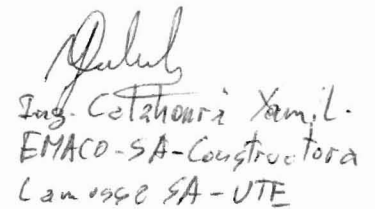 Ing. Catahonri Yamil.
EMACO-SA-Constructora
Lamosse SA-UTE